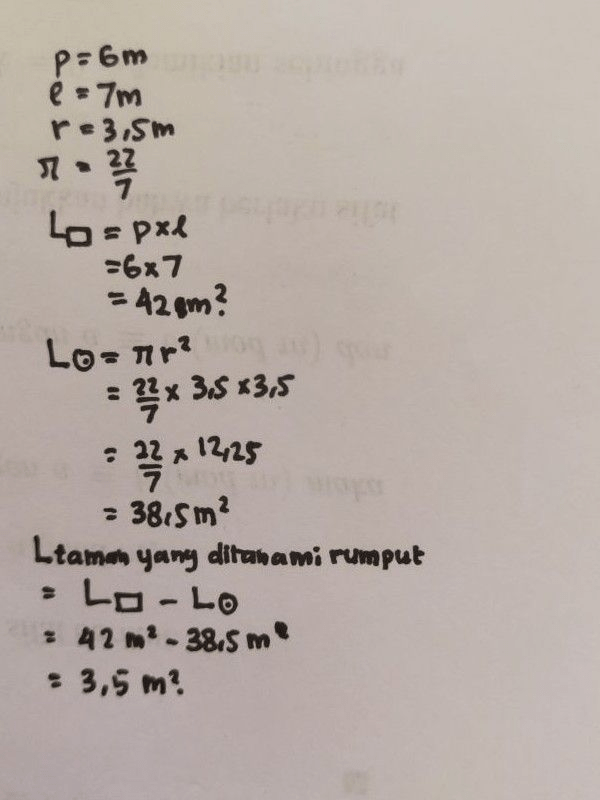 p = 6m
l = 7m
r = 3,5m
π = 22/7
L▭ = p x l
= 6 x 7
= 42 m²
L⊙ = πr²
= 22/7 x 3,5 x 3,5
= 22/7 x 12,25
= 38,5 m²
Ltaman yang ditanami rumput
= L▭ - L⊙
= 42 m² - 38,5 m²
= 3,5 m².